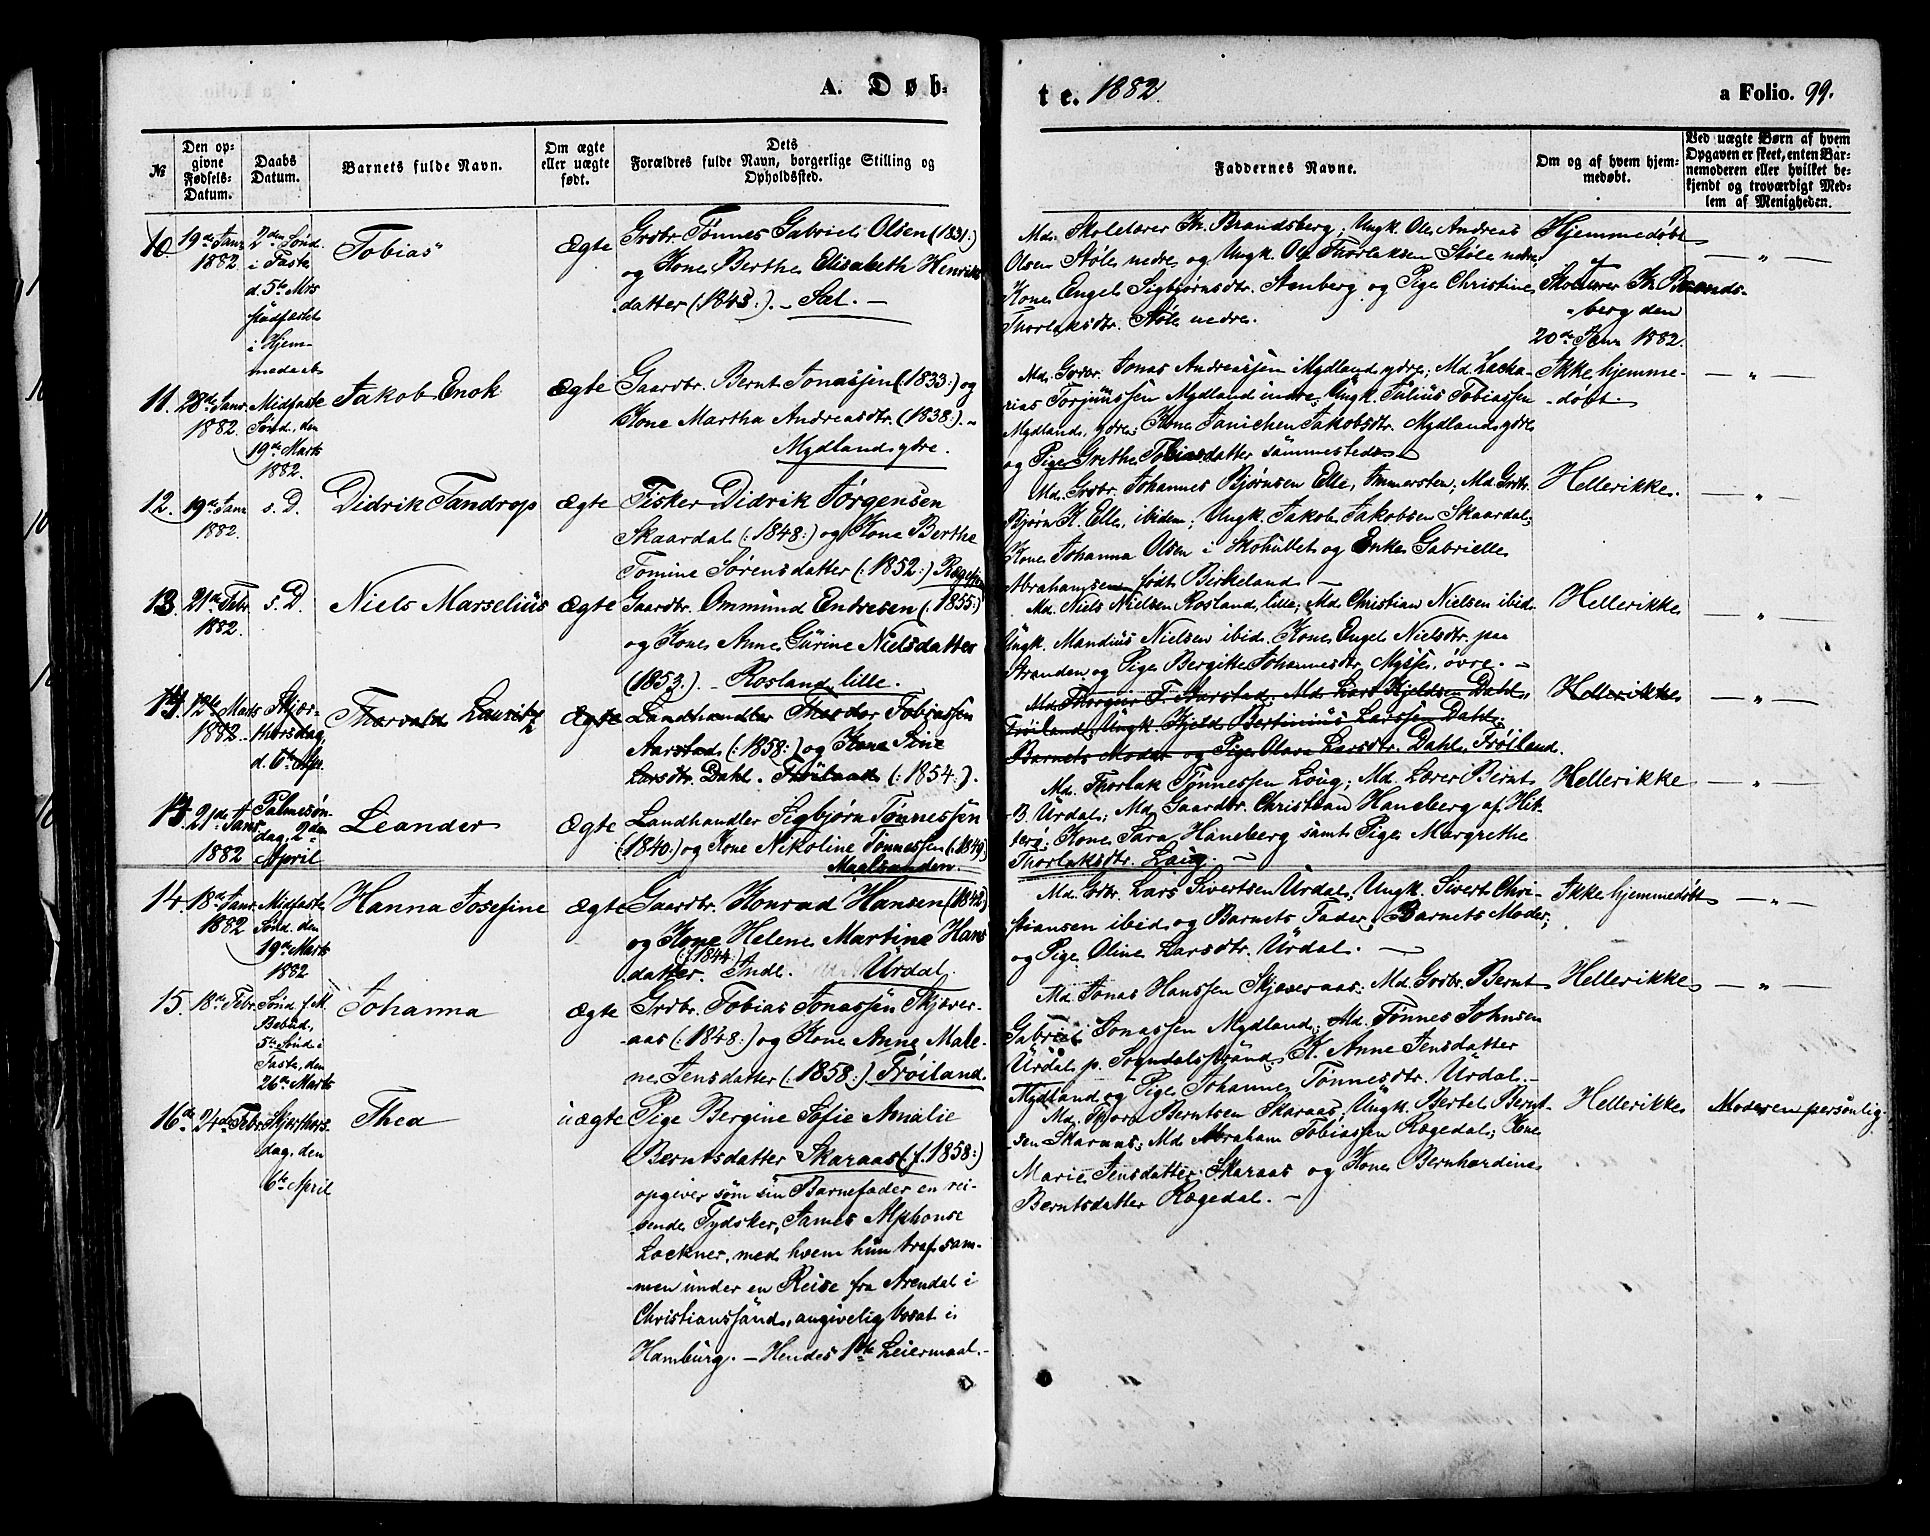 A. Døb-
te. 1882.
a Folio. 99.
№
Den op-
givne
Fødsels-
Datum.
Daabs
Datum.
Barnets fulde Navn.
Om ægte
eller uægte
født.
Dets
Forældres fulde Navn, borgerlige Stilling og
Opholdssted.
Faddernes Navne.
Om og af hvem hjem-
medøbt.
Ved uægte Børn af hvem
Opgaven er skeet, enten Bar-
nemoderen eller hvilket be-
kjendt og troværdigt Med-
lem af Menigheden.
10
19de Janr
1882
2den Sønd.
i Faste
d. 5te Mrs
stadfæstet
i Hjem-
medaab
Tobias
Ægte
Grdbr. Tønnes Gabriel Olsen (1831:)
og Kone Berthe Elisabeth Henriks
datter (1843:). – Sæl. –
Md. Skolelærer Th. Brandsberg; Ungk. Ole Andreas
Olsen Støle nedre og Ungk. Ole Thorlaksen Støle nedre,
Kone Engel Sigbjørnsdtr. Stenberg og Pige Christine
Thorlaksdtr. Støle nedre.
Hjemmedøbt
af
Skolelærer Th. Brands-
berg den
20de Janr 1882.
– „ –
11.
28de Janr
1882.
Midfaste
Sønd. den
19de Marts
1882.
Jakob Enok
Ægte
Gaardbr. Bernt Jonassen (1833:) og
Kone Martha Andreasdtr. (1838:). „
Mydland ydre.
Md. Grdbr. Jonas Andreassen Mydland ydre; Md. Zacha-
rias Torjussen Mydland indre, Ungk. Julius Tobiassen
Mydland ydre; Kone Janichen Jakobsdtr. Mydland ydre
og Pige Grethe Tobiasdatter sammesteds
Ikke hjemme-
døbt.
– „ –
12.
19de Janr
1882.
s. D.
Didrik Tandrop
Ægte
Fisker Didrik Jørgensen
Skaardal (:1848:) og Kone Berthe
Tomine Sørensdatter (:1852:) Rægefjor
Md. Grdbr. Johannes Bjørnsen Elle, Immersten; Md. Grdbr.
Bjørn K. Elle, ibidem; Ungk. Jakob Jakobsen Skaardal;
Kone Johanna Olsen i Skohullet og Enke Gabrielle
Abrahamsen født Birkeland –
Hellerikke.
– „ –
13.
21de Febr
1882.
s. D.
Niels Marselius
Ægte
Gaardbr. Ommund Endresen (:1855:)
og Kone Anne Gurine Nielsdatter
(1853:). – Rosland lille.
Md. Niels Nielsen Rosland lille; Md. Christian Nielsen ibid.
Ungk. Mandius Nielsen ibid. Kone Engel Nielsdtr. paa
Stranden og Pige Bergitte Johannesdtr. Mysse øvre. –
Hellerikke
– „ –
14.
12te Marts
1882.
Skjær-
thorsdag
d. 6te Apr.
Thorvald Lauritz
Ægte
Landhandler Theodor Tobiassen
Aarstad (:1858:) og Kone Sine
Larsdtr. Dahl. Frøiland (:1854:).
Md. Thorger T. Aarstad; Md. Lars Kjeldsen Dahl,
Frøiland, Ungk. Kjeld Bertinius Larssen Dahl;
Barnets Moder og Pige Olava Larsdtr. Dahl, Frøiland.
Hellerikke
– „ –
13.
21de Janr
1882
Palmesøn-
dag, 2den
April
Leander
Ægte
Landhandler Sigbjørn Tønnessen
(1840:) og Kone Nikoline Tønnessen (:1849)
Maalsanden.
Md. Thorlak Tønnessen Löng; Md. Lærer Bernt
B. Urdal; Md. Gaardbr. Christian Haneberg af Hit-
terø; Kone Sara Haneberg samt Pige Margrethe
Thorlaksdtr. Löng. –
Hellerikke
– „ –
14.
18de Janr
1882
Midfaste
Sønd. den
19de Marts
1882
Hanna Josefine
Ægte
Gaardbr. Konrad Hansen (1848)
og Kone Helene Martine Hans
(:1844:)
datter. Indl. Urdal.
Md. Grdbr. Lars Sivertsen Urdal, Ungk. Sivert Chri-
stiansen ibid og Barnets Fader; Barnets Moder;
og Pige Oline Larsdtr. Urdal. –
Ikke hjemmedøbt
– „ –
15.
18de Febr
Sønd. f. M.
Bebud,
5te Sønd i
Faste, den
26de Marts
Johanna
Ægte
Grdbr. Tobias Jonassen Skjæve-
raas (:1848:) og Kone Anne Male-
ne Jensdatter (:1858:) Frøiland.
Md. Jonas Hanssen Skjæveraas; Md. Grdbr. Bernt
Gabriel Jonassen Mydland; Md. Tønnes Johnsen
Urdal p. Sogndalsstrand, K. Anne Jensdatter
Mydland og Pige Johanne Tønnesdtr. Urdal. –
Hellerikke
– „ –
16de
24de Febr
Skjærthors-
dag, den
6te April
Thea
uægte
Pige Bergine Sofie Amalie
Berntsdatter Skaraas (f. 1858:)
opgiver som sin Barnefader en rei-
sende Tydsker, James Alphonse
Lockner, med hvem hun traf sam-
men under en Reise fra Arendal i
Christianssand, angivelig bosat i
Hamburg. – Hendes 1ste Leiermaal. –
Md. Thore Berntsen Skaraas, Ungk. Bertel Bernt-
sen Skaraas; Md Abraham Tobiassen Rægedal; Kone
Marie Jensdatter Skaraas og Kone Bernhardine
Berntsdatter Rægedal. –
Hellerikke
Moderen personlig.